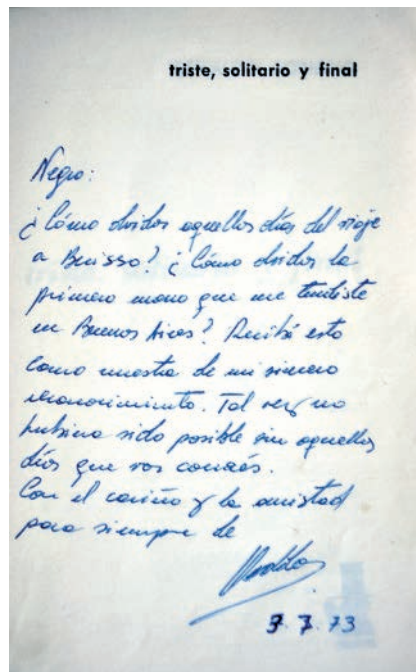 triste, solitario y final
Negro:
¿Cómo olvidar aquellos días del viaje
a Berisso? ¿Cómo olvidar la
primera mano que me tendiste
en Buenos Aires? Recibí esto
como muestra de mi sincero
reconocimiento. Tal vez no
hubiera sido posible sin aquellos
días que vos conocés.
Con el cariño y la amistad
para siempre de
Osvaldo
7.7.73